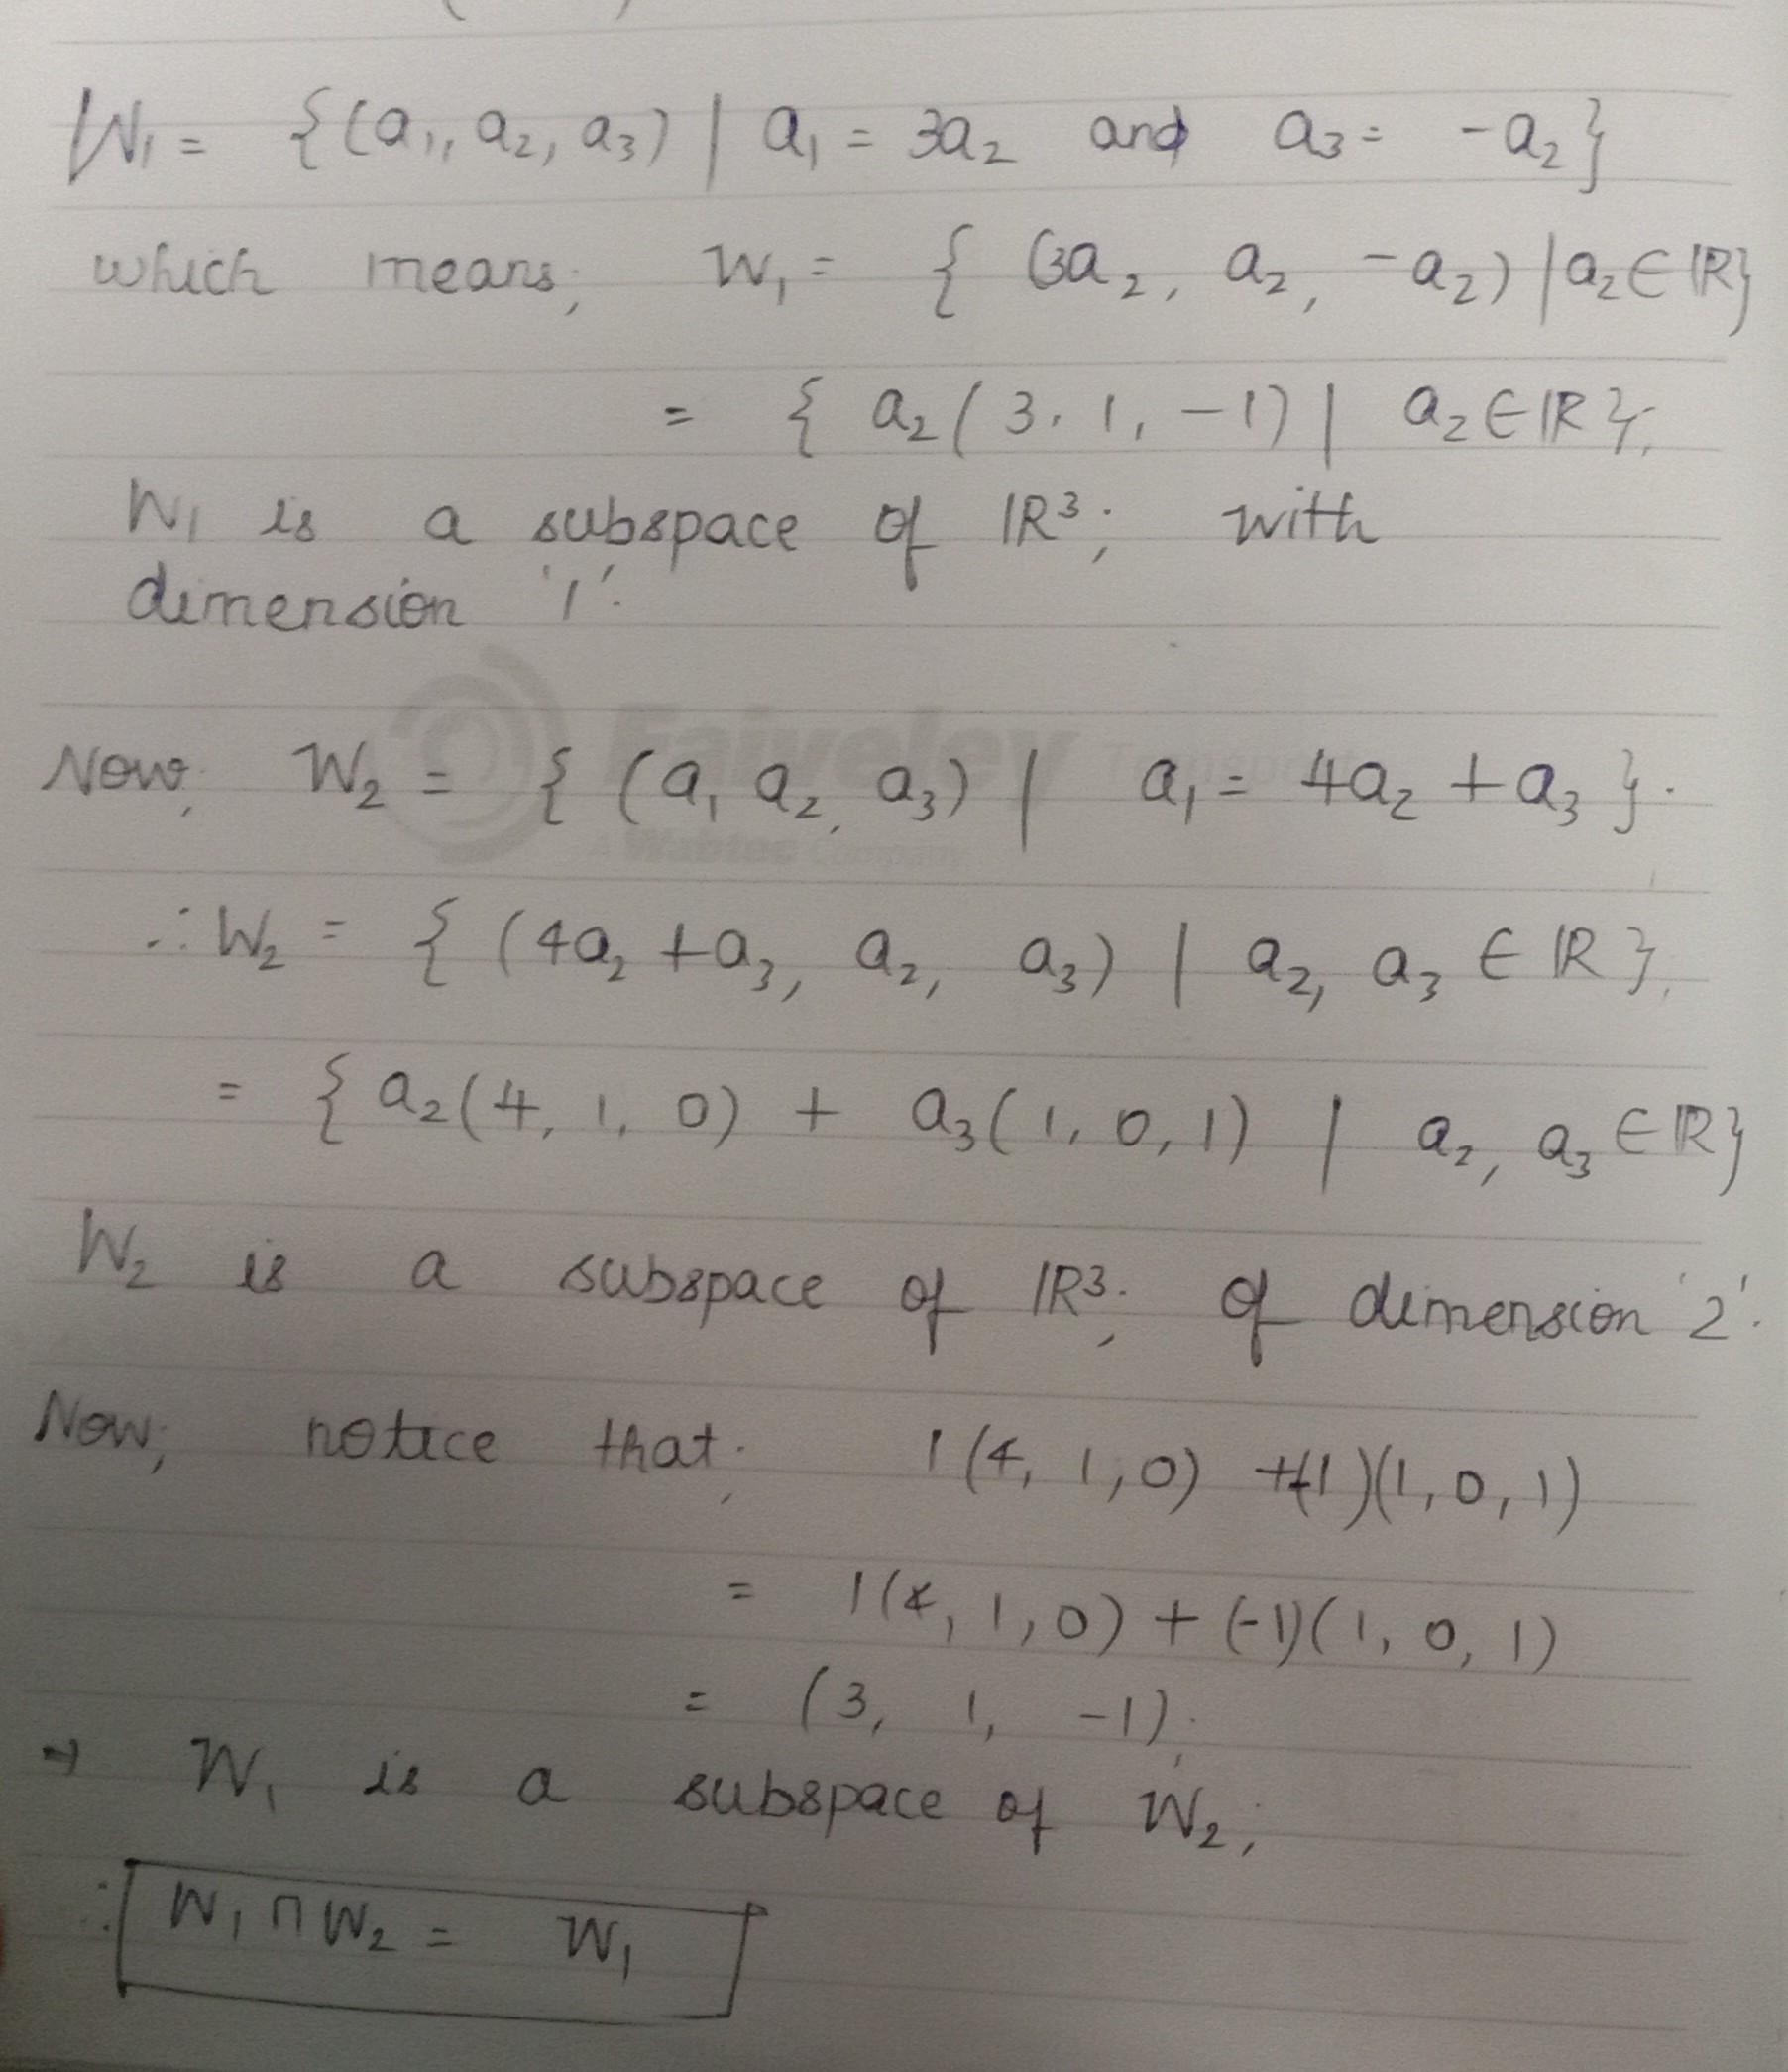 W₁ = {(a₁, a₂, a₃) | a₁ = 3a₂ and a₃ = -a₂}
which means; W₁ = { (3a₂, a₂, -a₂) | a₂ ∈ ℝ}
= { a₂ (3, 1, -1) | a₂ ∈ ℝ };
W₁ is a subspace of ℝ³; with
dimension '1'.
Faiveley Transport
A Wabtec Company
Now, W₂ = { (a₁ a₂, a₃) | a₁ = 4a₂ + a₃ }.
∴ W₂ = { (4a₂ + a₃, a₂, a₃) | a₂, a₃ ∈ ℝ };
= { a₂(4, 1, 0) + a₃(1, 0, 1) | a₂, a₃ ∈ ℝ}
W₂ is a subspace of ℝ³; of dimension '2'.
Now; notice that; 1(4, 1, 0) + (-1)(1, 0, 1)
= 1(4, 1, 0) + (-1)(1, 0, 1)
= (3, 1, -1);
→ W₁ is a subspace of W₂;
∴ W₁ ∩ W₂ = W₁